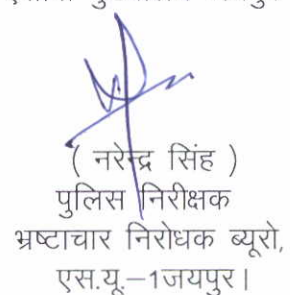 ( नरेन्द्र सिंह )
पुलिस निरीक्षक
भ्रष्टाचार निरोधक ब्यूरो,
एस.यू.–1जयपुर।